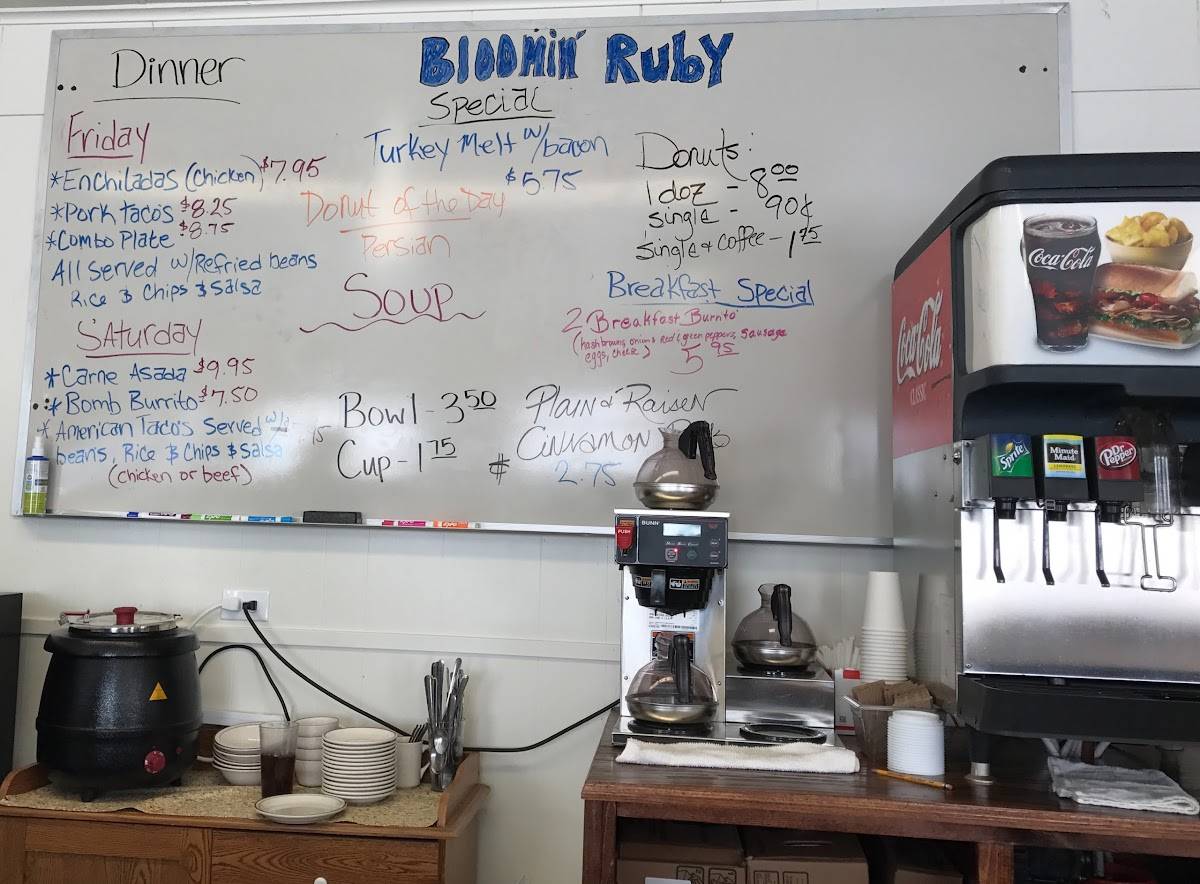 Dinner
Friday
*Enchiladas (chicken) $7.95
*Pork Taco's $8.25
*Combo Plate $8.75
All Served w/Refried beans
Rice & Chips & Salsa
Saturday
*Carne Asada $9.95
*Bomb Burrito $7.50
*American Taco's Served w/
beans, Rice & Chips & Salsa
(chicken or beef)
Bloomin' Ruby
Special
Turkey Melt w/bacon
$5.75
Donut of the Day
Persian
Soup
Bowl - 3.50
Cup - 1.75
Donuts:
1 doz - 8.00
single - 90¢
single & coffee - 1.75
Breakfast Special
2 Breakfast Burrito
(hashbrowns, onions Red & green peppers, Sausage
eggs, cheese) 5.95
Plain & Raisen
Cinnamon
2.75
BUNN
PUSH
Coca-Cola
CLASSIC
Coca-Cola
Sprite
Minute
Maid
LEMONADE
Dr
Pepper